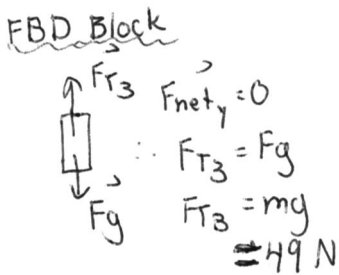 FBD Block
F⃗T3
F⃗nety = 0
∴ FT3 = Fg
F⃗g
FT3 = mg
= 49 N